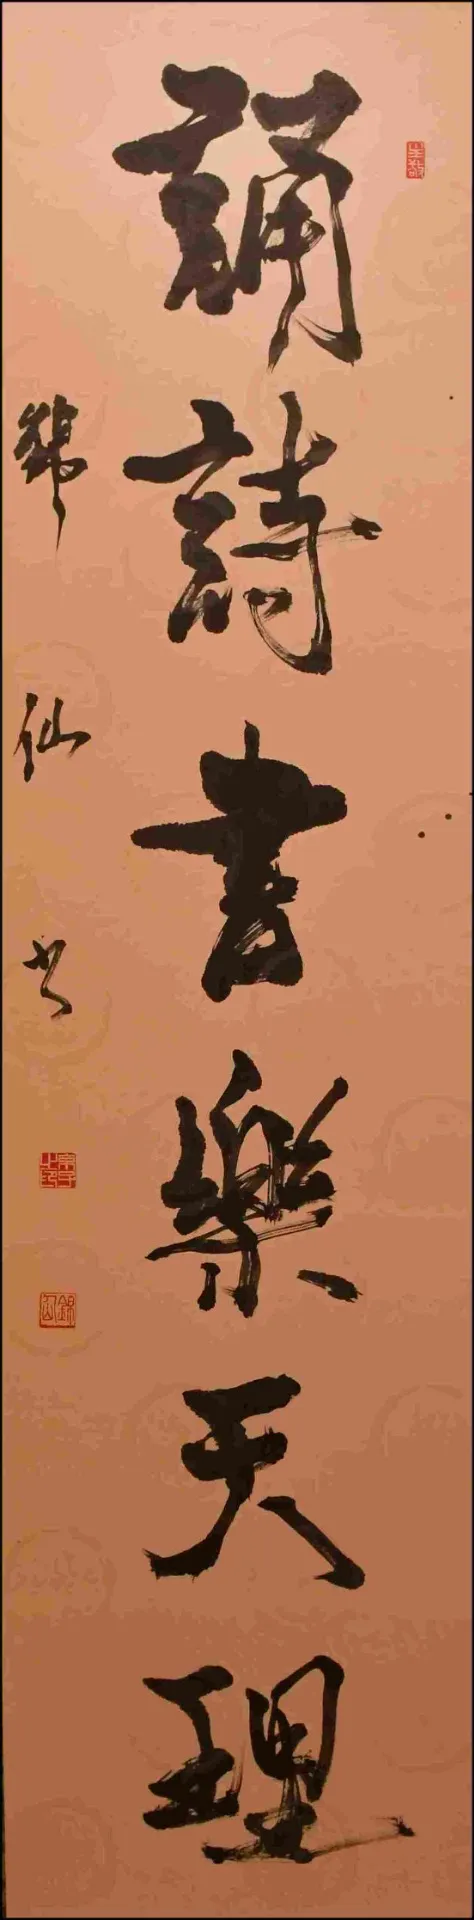 誦詩書樂天理
錦仙书